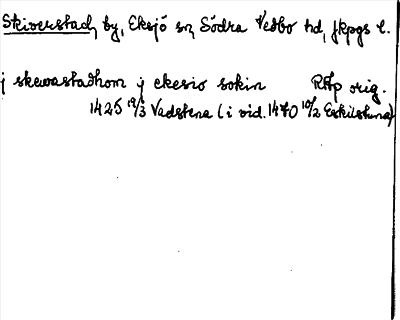 Skiverstad, by, Eksjö sn, Södra Vedbo hd, Jkpgs l.
j skewastadhom j ekesio sokin RAp orig.
1425 19/3 Vadstena (i vid. 1470 10/2 Eskilstuna)